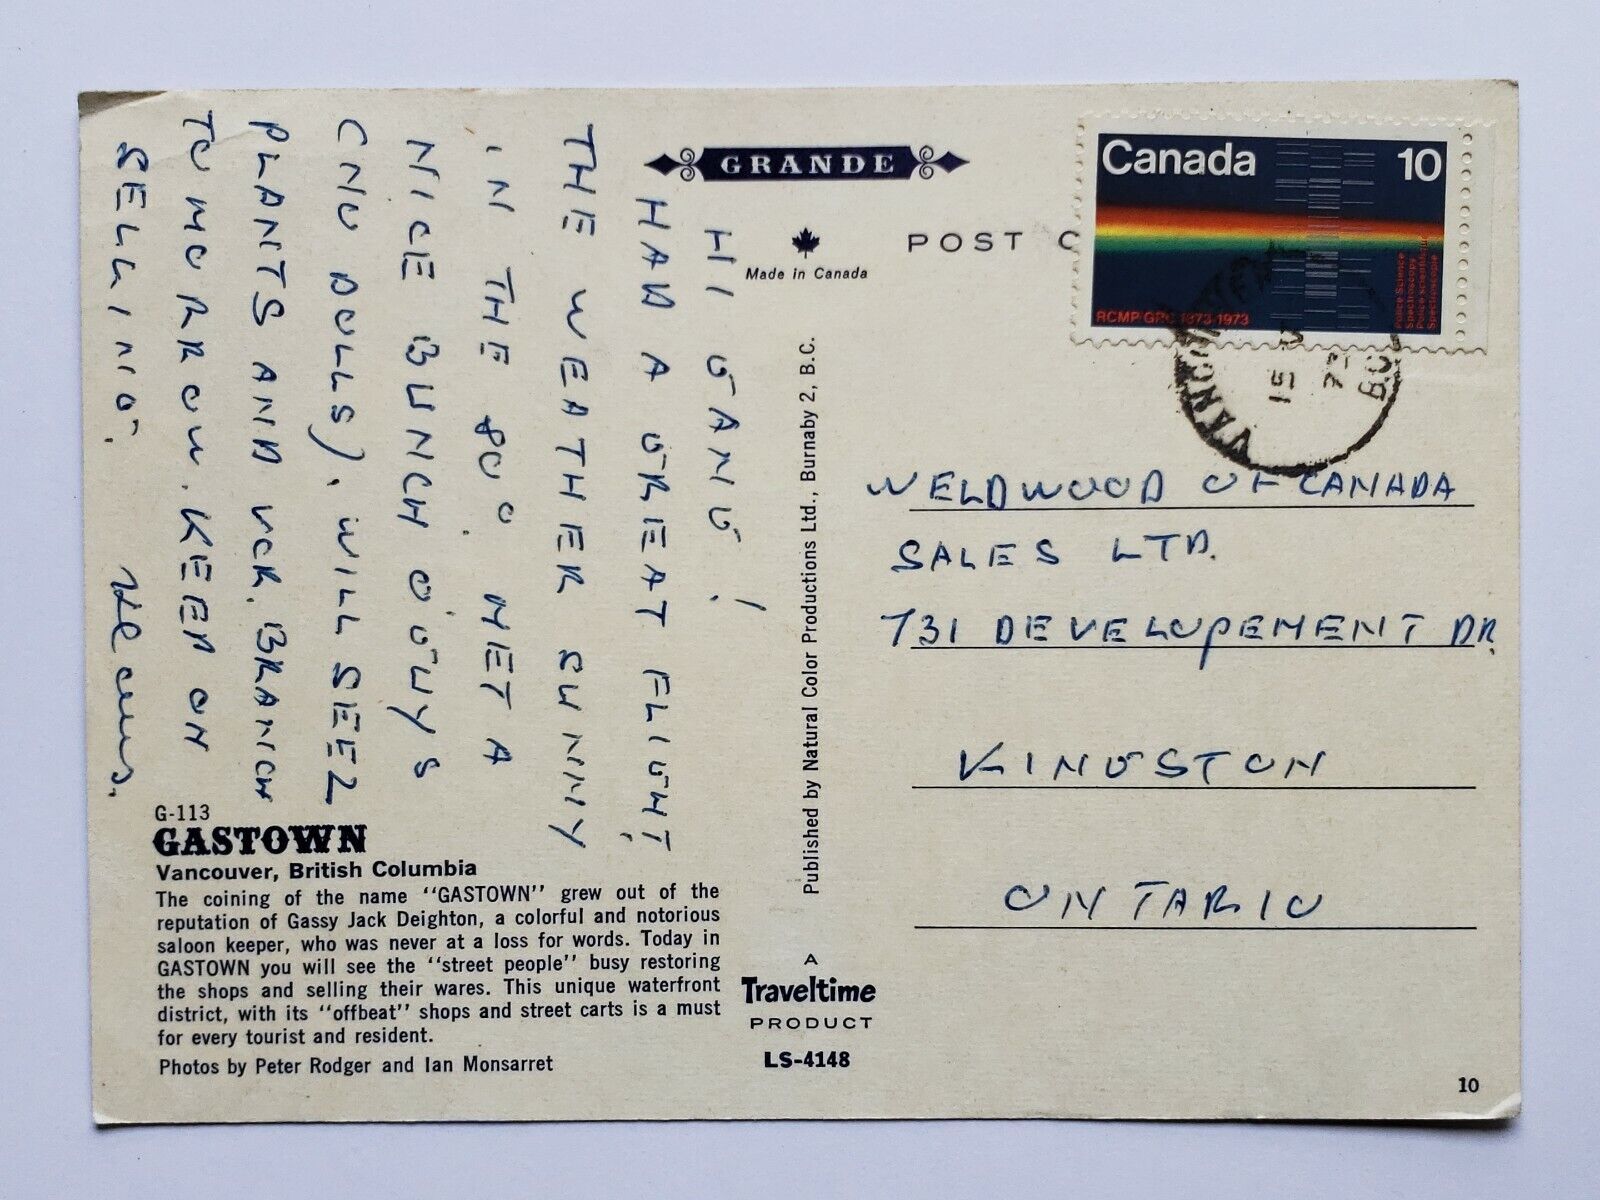 GRANDE
Made in Canada
POST C
Canada 10
RCMP GRC 1873-1973
Police Science
Spectroscopy
Police scientifique
Spectroscopie
VANCOUVER
15
73
B.C.
HI GANG!
HAD A GREAT FLIGHT,
THE WEATHER SUNNY
IN THE 80°. MET A
NICE BUNCH O'GUYS
(NO DOLLS). WILL SEE 2
PLANTS AND VCR. BRANCH
TOMORROW. KEEP ON
SELLING.
WELDWOOD OF CANADA
SALES LTD.
731 DEVELOPEMENT DR.
KINGSTON
ONTARIO
Published by Natural Color Productions Ltd., Burnaby 2, B.C.
G-113
GASTOWN
Vancouver, British Columbia
The coining of the name "GASTOWN" grew out of the
reputation of Gassy Jack Deighton, a colorful and notorious
saloon keeper, who was never at a loss for words. Today in
GASTOWN you will see the "street people" busy restoring
the shops and selling their wares. This unique waterfront
district, with its "offbeat" shops and street carts is a must
for every tourist and resident.
Photos by Peter Rodger and Ian Monsarret
A
Traveltime
PRODUCT
LS-4148
10